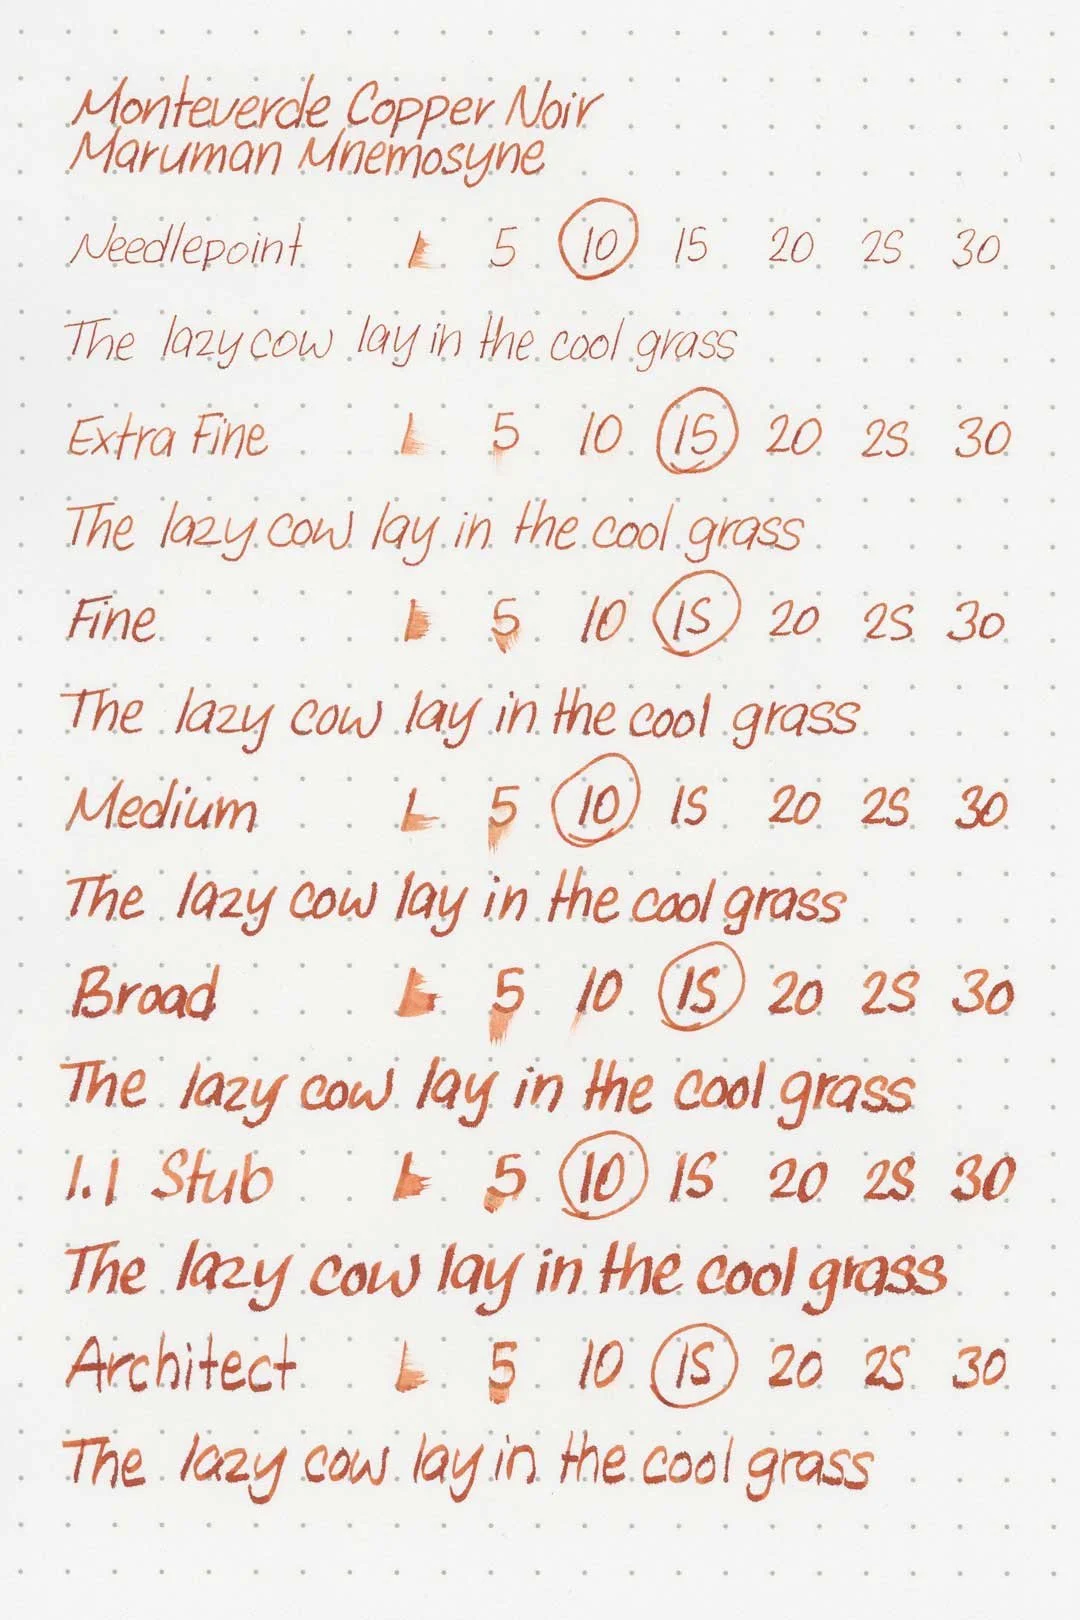 Monteverde Copper Noir
Maruman Mnemosyne
Needlepoint 1 5 10 15 20 25 30
The lazy cow lay in the cool grass
Extra Fine 1 5 10 15 20 25 30
The lazy cow lay in the cool grass
Fine 1 5 10 15 20 25 30
The lazy cow lay in the cool grass
Medium 1 5 10 15 20 25 30
The lazy cow lay in the cool grass
Broad 1 5 10 15 20 25 30
The lazy cow lay in the cool grass
1.1 Stub 1 5 10 15 20 25 30
The lazy cow lay in the cool grass
Architect 1 5 10 15 20 25 30
The lazy cow lay in the cool grass